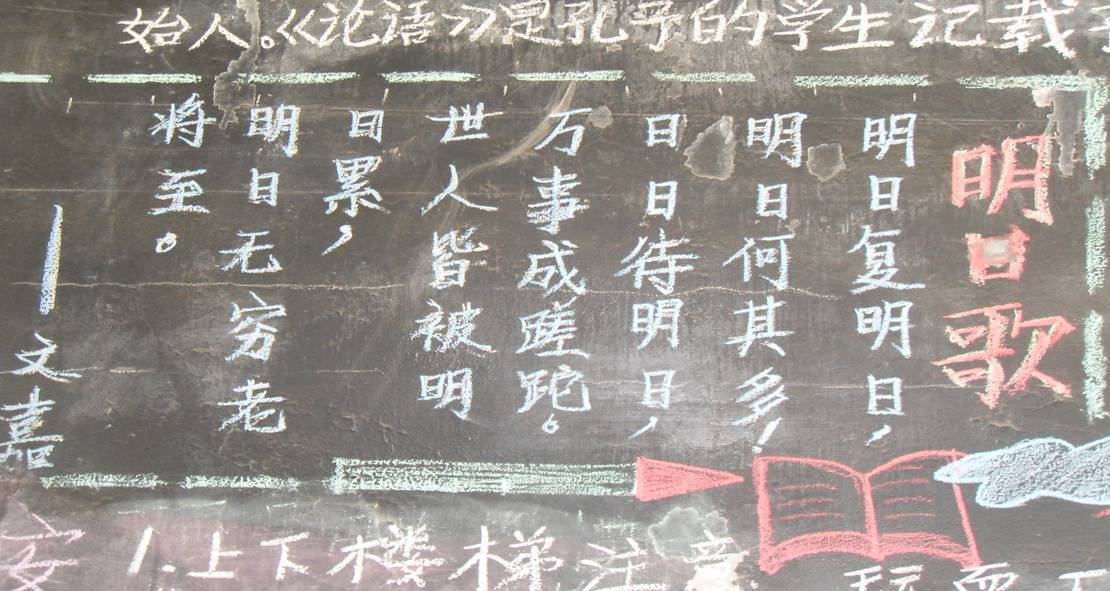 始人。《论语》是孔子的学生记载
明日歌
明日复明日，
明日何其多！
日日待明日，
万事成蹉跎。
世人皆被明
日累，
明日无穷老
将至。
—文嘉
1.上下楼梯注意
安
玩耍